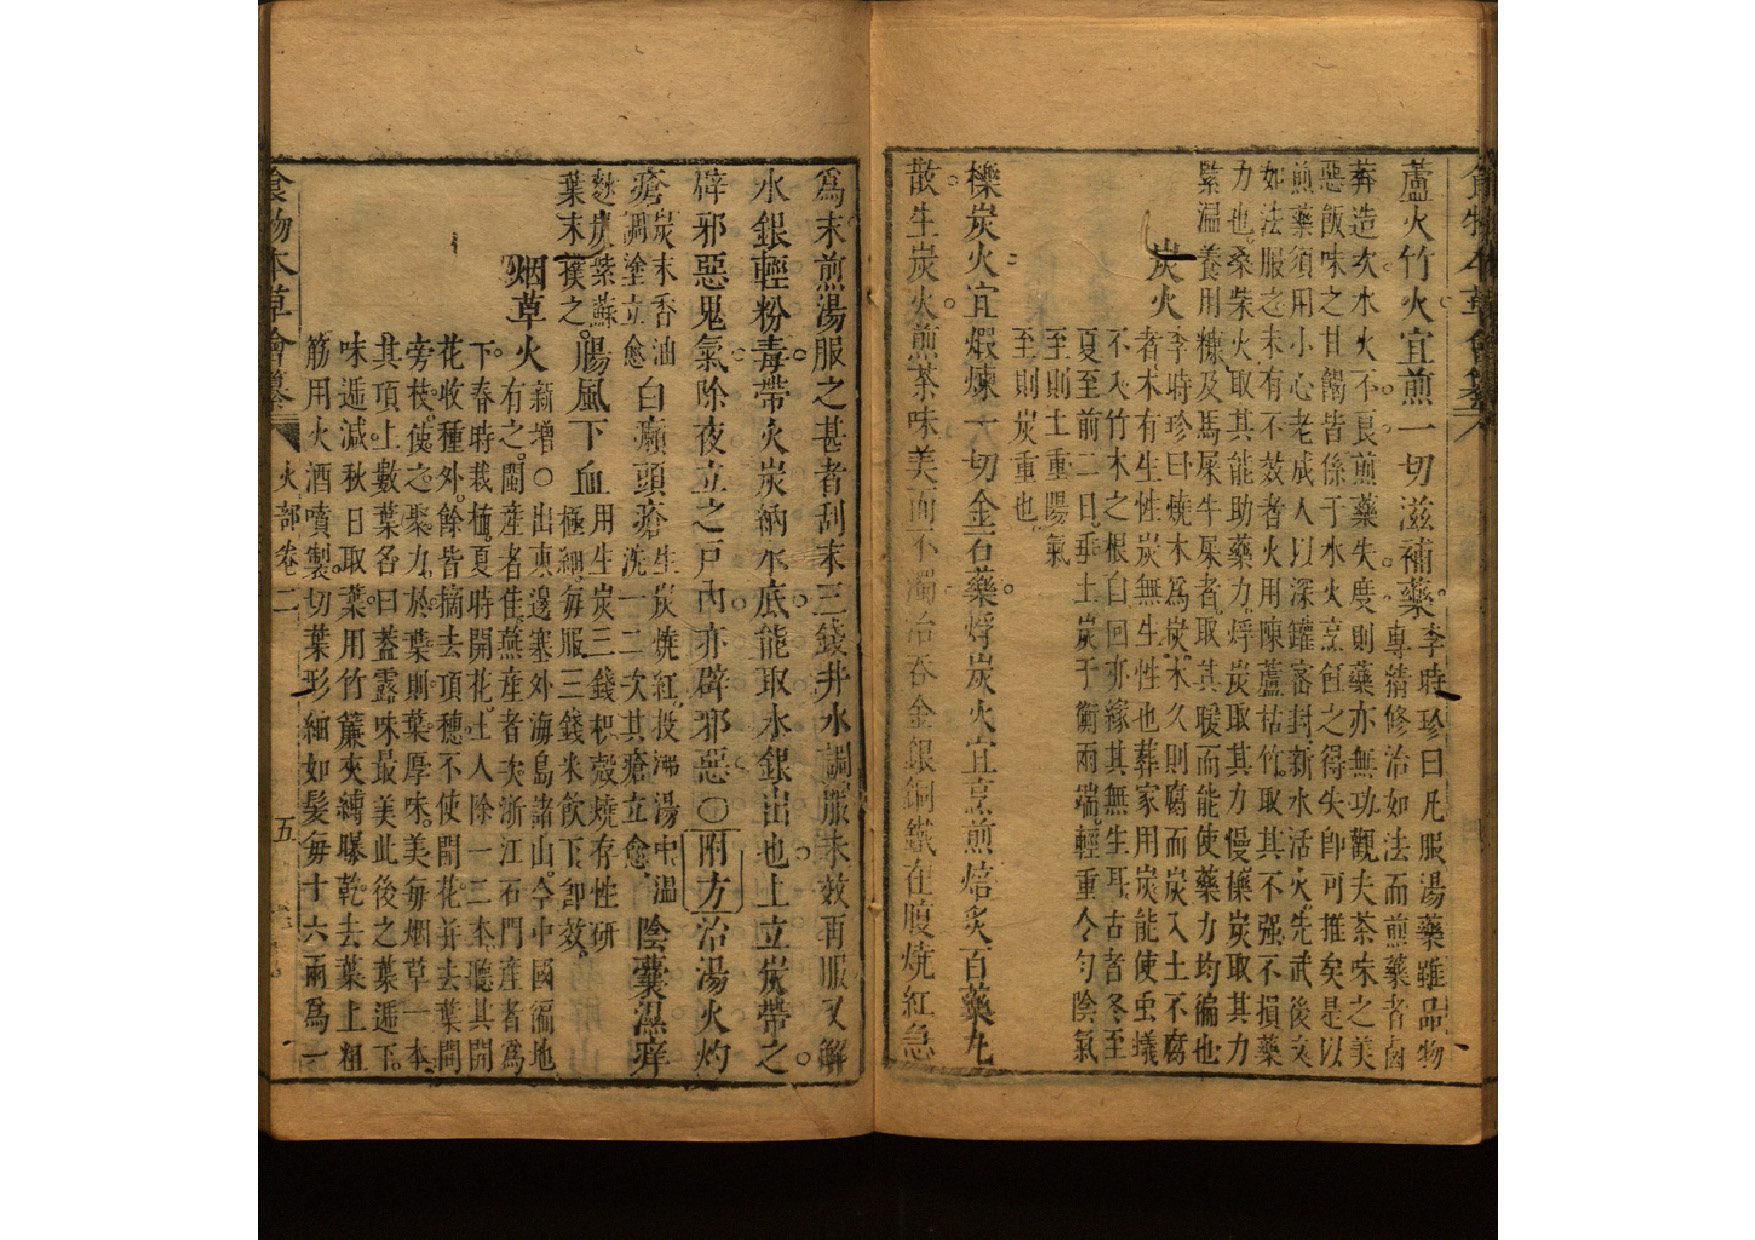 食物本草會纂
蘆火竹火宜煎一切滋補藥。李時珍曰凡服湯藥雖品物
專精修治如法而煎藥者鹵
莽造次水火不良煎藥失度則藥亦無功觀夫茶味之美
惡飯味之甘餲皆係于水火烹飪之得失即可推矣是以
煎藥須用小心老成人以深鑵密封新水活火先武後文
如法服之未有不效者火用陳蘆枯竹取其不强不損藥
力也桑柴火取其能助藥力烰炭取其力慢櫟炭取其力
緊温養用糠及馬屎牛屎者取其暖而能使藥力均徧也
炭火 李時珍曰燒木為炭木久則腐而炭入土不腐
者木有生性炭無生性也葬家用炭能使虫蟻
不入竹木之根自回亦緣其無生耳古者冬至
夏至前二日垂土炭于衡兩端輕重令勻陰氣
至則土重陽氣
至則炭重也
櫟炭火宜煅煉一切金石藥烰炭火宜烹煎焙炙百藥丸
散生炭火煎茶味美而不濁治吞金銀銅鐵在腹燒紅急
為末煎湯服之甚者刮末三錢井水調服未效再服又解
水銀輕粉毒帶火炭納水底能取水銀出也上立炭帶之
辟邪惡鬼氣除夜立之戶內亦辟邪惡○附方治湯火灼
瘡炭末香油調塗立愈 白癩頭瘡生炭燒紅投沸湯中温洗一二次其瘡立愈 陰囊濕痒
麩炭紫蘇葉末撲之 腸風下血用生炭三錢枳殼燒存性研極細每服三錢米飲下即效
烟草火 新增○出東邊塞外海島諸山今中國徧地
有之閩産者佳燕産者次浙江石門産者為
下春時栽植夏時開花土人除一二本聽其開
花收種外餘皆摘去頂穗不使開花并去葉間
旁枝使之聚力於葉則葉厚味美每烟草一本
其頂上數葉名曰蓋露味最美此後之葉遞下
味遞減秋日取葉用竹簾夾縛曝乾去葉上粗
筋用火酒噴製切葉形細如髮每十六兩為一
食物本草會纂 火部卷二 五